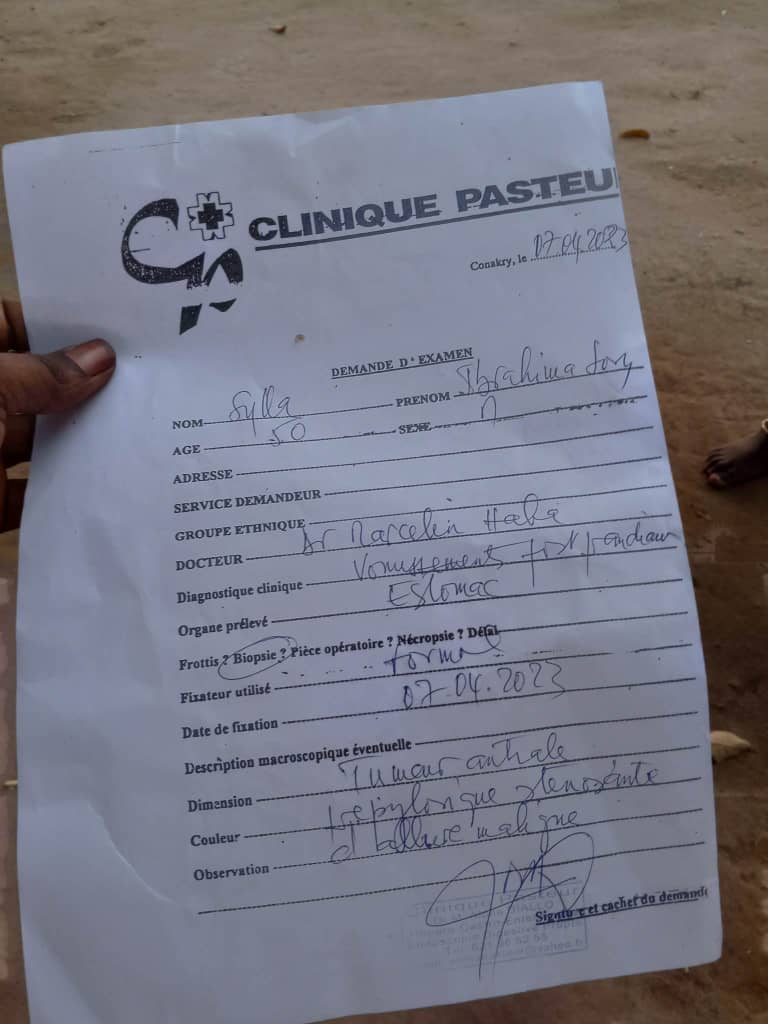 CLINIQUE PASTEU
Conakry, le 07.04.2023
DEMANDE D'EXAMEN
NOM Sylla PRENOM Ibrahima Sory
AGE 50 SEXE M
ADRESSE
SERVICE DEMANDEUR
GROUPE ETHNIQUE
DOCTEUR Dr Marcelin Haba
Diagnostique clinique Vomissements post prandiaux
Organe prélevé Estomac
Frottis ? Biopsie ? Pièce opératoire ? Nécropsie ? Délai
Fixateur utilisé formol
Date de fixation 07.04.2023
Description macroscopique éventuelle
Dimension Tumeur antrale
Couleur prépylorique sténosante
Observation d'allure maligne
Signatu e et cachet du demand
Clinique Pasteur
DIALLO